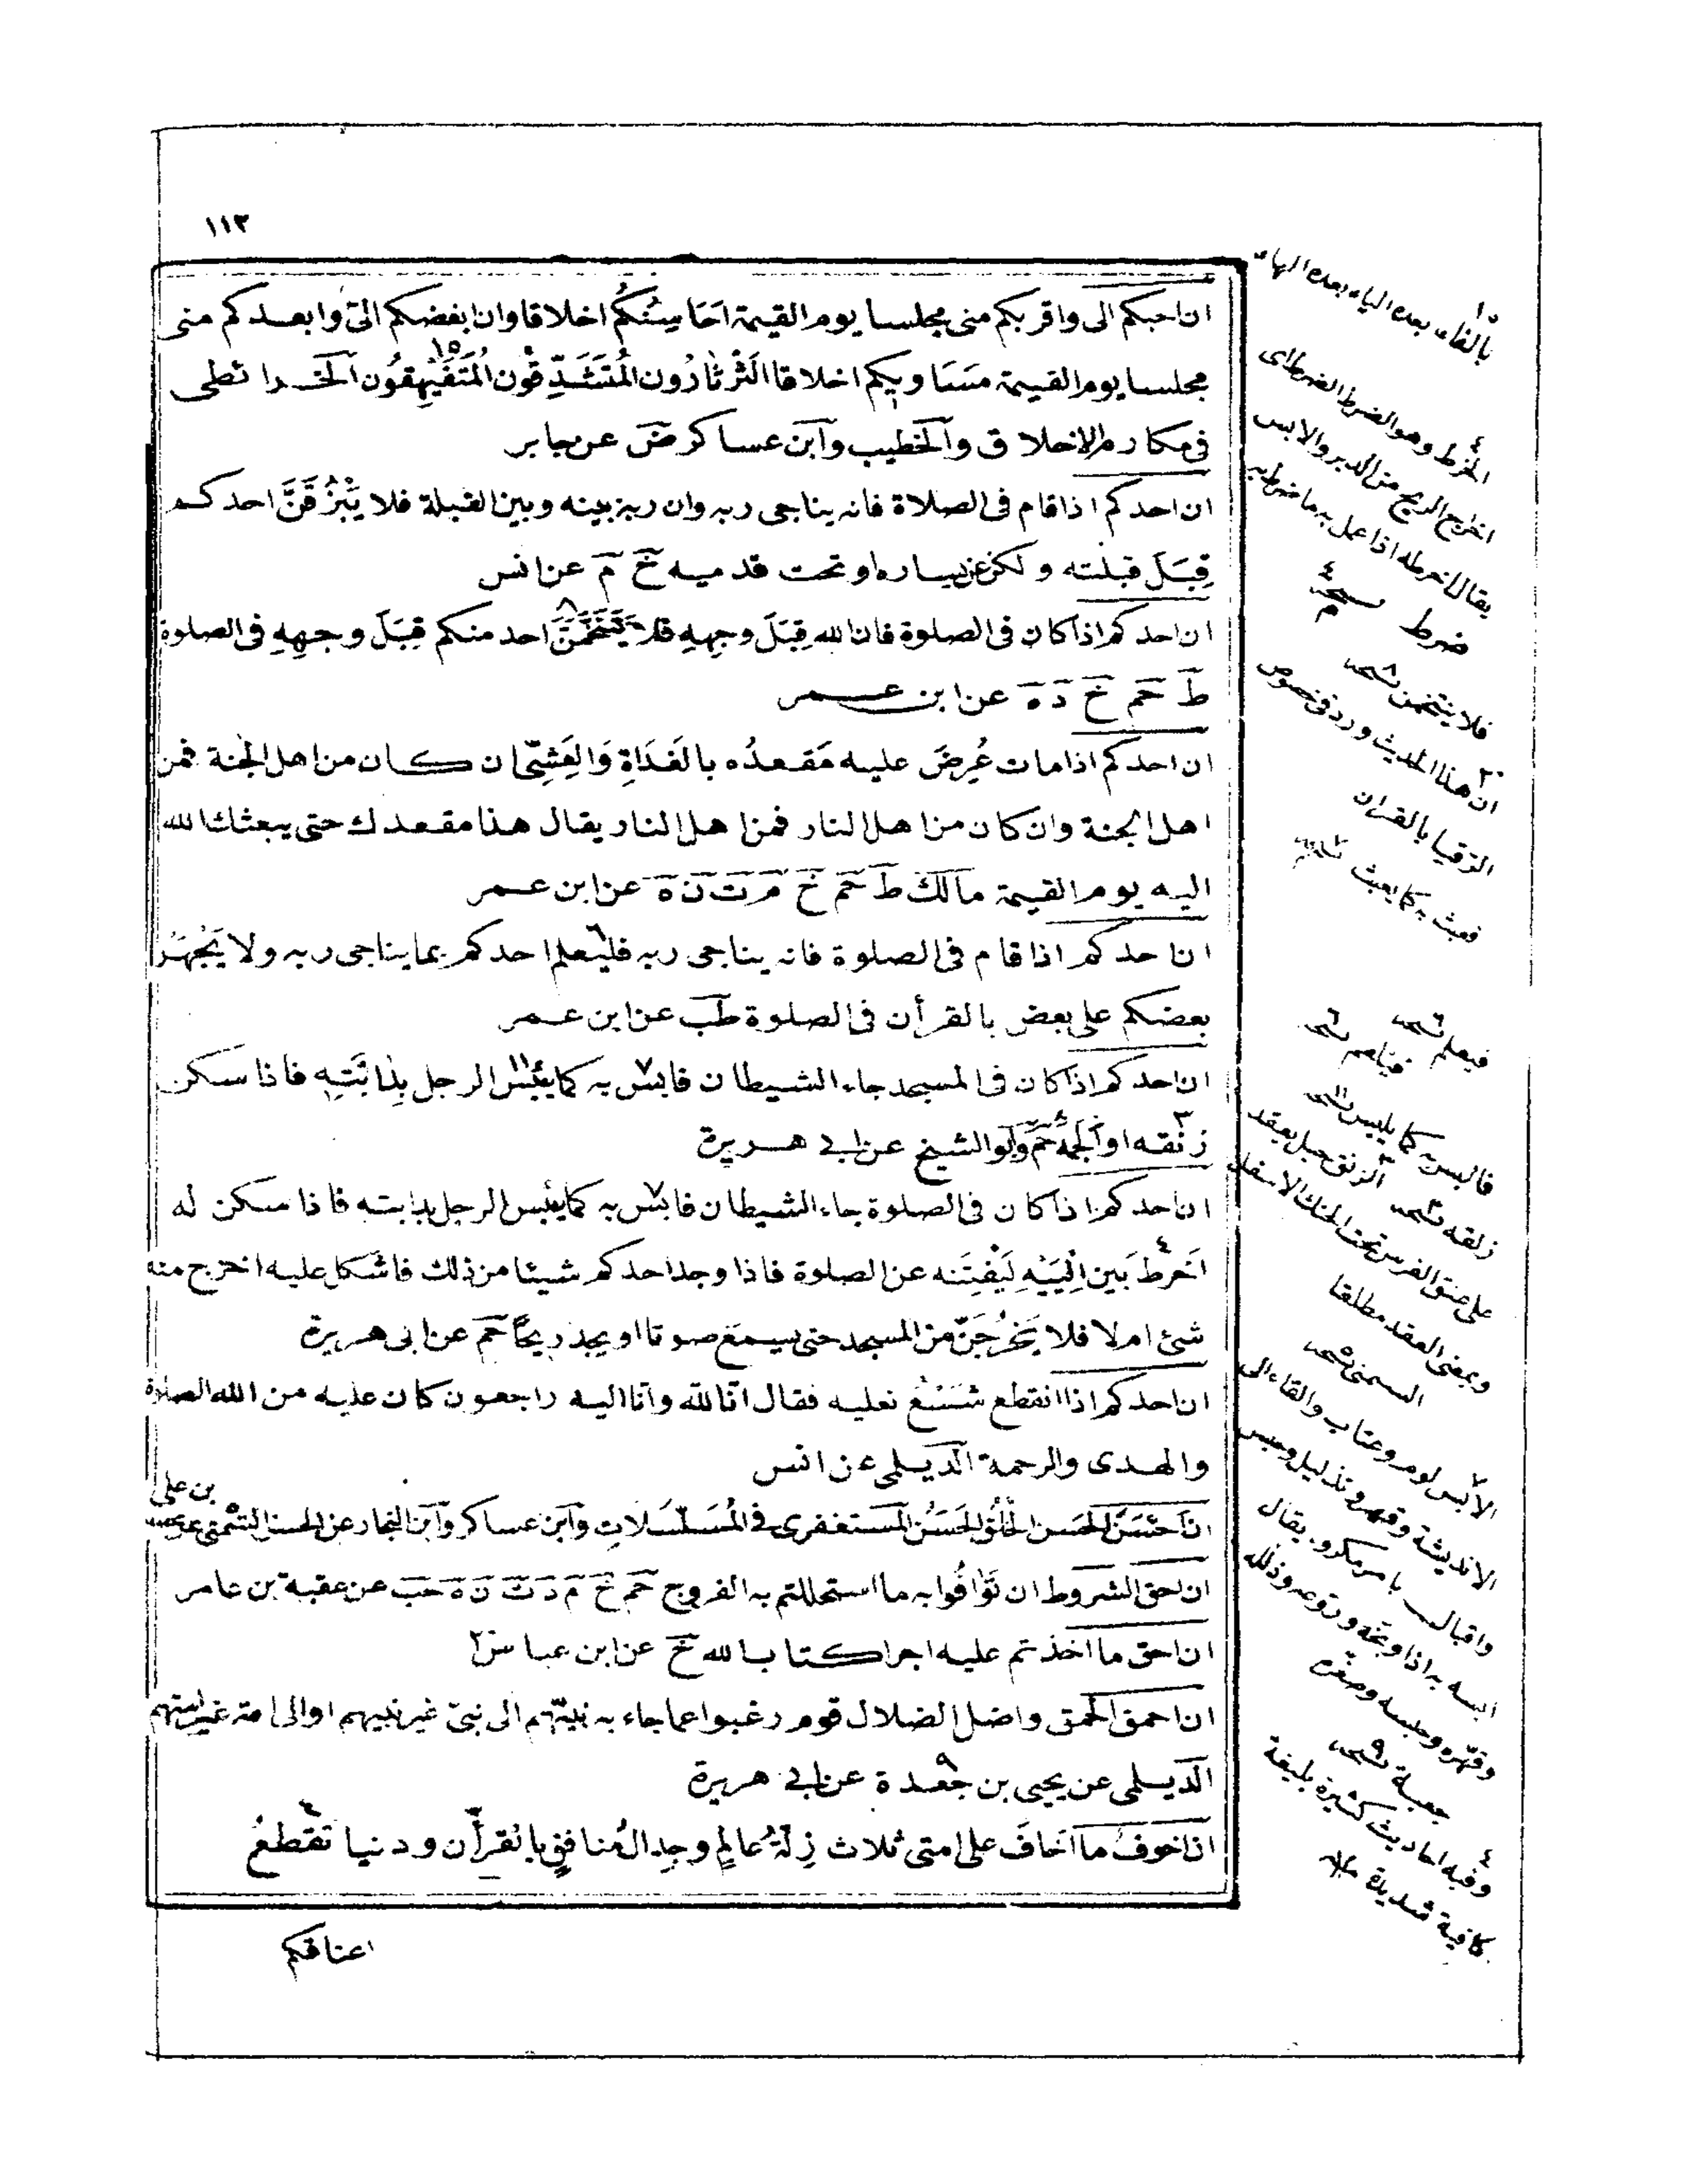 ١١٣
ان احبكم الى واقربكم منى مجلسا يوم القيمة اَحَاسِنُكُمْ اخلاقا وان ابغضكم الىّ وابعدكم منى
مجلسا يوم القيمة مَسَاويكم اخلاقا الثَّرْثَارُون المُتَشَدِّقُون المُتَفَيْهِقُون الخرائطى
فى مكارم الاخلاق والخطيب وابن عساكر ض عن جابر
ان احدكم اذا قام فى الصلاة فانه يناجى ربه وان ربه بينه وبين القبلة فلا يَبْزُقَنَّ احدكم
قِبَلَ قبلته ولكن عن يساره او تحت قدميه خ م عن انس
ان احدكم اذا كان فى الصلوة فان الله قِبَلَ وجهِهِ فلا يَتَنَخَّمَنَّ احد منكم قِبَلَ وجهِهِ فى الصلوة
ط حم خ د ه عن ابن عمر
ان احدكم اذا مات عُرِضَ عليه مَقعدُه بالغَدَاةِ وَالعَشِىِّ ان كان من اهل الجنة فمن
اهل الجنة وان كان من اهل النار فمن اهل النار يقال هذا مقعدك حتى يبعثك الله
اليه يوم القيمة مالك ط حم خ م ت ن ه عن ابن عمر
ان احدكم اذا قام فى الصلوة فانه يناجى ربه فليعلم احدكم بما يناجى ربه ولا يَجْهَرْ
بعضكم على بعض بالقرأن فى الصلوة طب عن ابن عمر
ان احدكم اذا كان فى المسجد جاء الشيطان فابس به كما يبس الرجل بِدَابَّتِهِ فاذا سكن
زنقه او الجمه حم وابو الشيخ عن ابى هريرة
ان احدكم اذا كان فى الصلوة جاء الشيطان فابس به كما يبس الرجل بدابته فاذا سكن له
اَخْرَطَ بَين اِلْيَتَيْهِ لِيَفْتِنَه عن الصلوة فاذا وجد احدكم شيئا من ذلك فاشكل عليه اخرج منه
شئ ام لا فلا يَخْرُجَنَّ من المسجد حتى يسمع صوتا او يجد ريحًا حم عن ابى هريرة
ان احدكم اذا انقطع شسْعُ نعليه فقال انّا لله وانّا اليه راجعون كان عليه من الله الصلاة
والهدى والرحمة الديلمى عن انس
ان اَحْسَنَ الحَسن الخُلُق الحَسَنُ المستغفرى فى المُسَلْسَلاتِ وابن عساكر وابن النجار عن الحسن
بن على
ان احق الشروط ان تُوَافُوا به ما استحللتم به الفروج حم خ م د ت ن ه حب عن عقبة بن عامر
ان احق ما اخذتم عليه اجرا كتاب الله خ عن ابن عباس
ان احمق الحمق واضل الضلال قوم رغبوا عما جاء به نبيّهم الى نبىّ غير نبيهم او الى امة غير امتهم
الديلمى عن يحيى بن جعدة عن ابى هريرة
ان اخوفَ ما اَخافَ على امتى ثلاث زِلَّةُ عالِمٍ وجِدال مُنافِقٍ بالقرأن ودنيا تقطعُ
اعناقكم
بالفاء بعده الياء بعده الهاء
الخرط وهو الضرط الضرط اى
اخراج الريح من الدبر
يقال اخرطه اذا عمل به ما ضرط به
ضرط نسخه
فلا يتنخمن نسخه
ان هذا الحديث ورد فى خصوص
بالقران
فعبث به كما يعبث
فيعلم نسخه
كما يلبس نسخه
الزنق حبل يعقد
زلقه نسخه
على عنق الفرس تحت الحنك الاسفل
وبمعنى العقد مطلقا
السمنى نسخه
الابس لوم وعتاب والقاء الى
وقهر وتذليل وحبس
ابسه به اذا وبخه
وقهره وحبسه وصغره
جعبلة نسخه
وفيه احاديث كثيرة بليغة
كافية شديدة